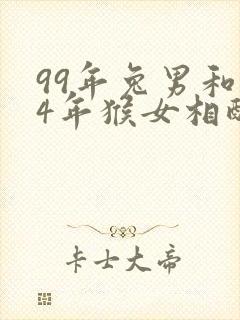 99年兔男和
4年猴女相配
卡士大帝